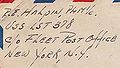 P.F. HARDIN PhM1c
USS LST 398
c/o FLEET POST OFFICE
NEW YORK, N.Y.